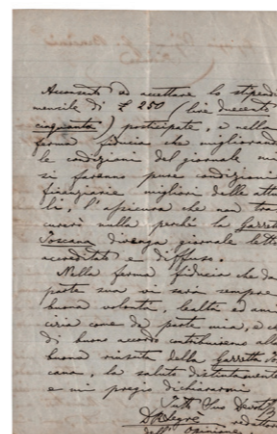 Acconsento ad accettare lo stipendio
mensile di £ 250 (lire duecento
cinquanta) partecipate, e nella
ferma fiducia che migliorando
le condizioni del giornale non
si faranno pure condizioni
finanziarie migliori delle attua
li, l'assicuro che non tra
curerò nulla perchè la Gazzetta
Toscana divenga giornale letto
accreditato e diffuso.
Nella ferma fiducia che da
parte sua vi sarà sempre
buona volontà, lealtà ed ami
cizia come da parte mia, e
di buon accordo contribuiremo alla
buona riuscita della Gazzetta Tos
cana, la saluto distintamente
e mi pregio dichiararmi
Tutto Suo
redattore
dell'Opinione